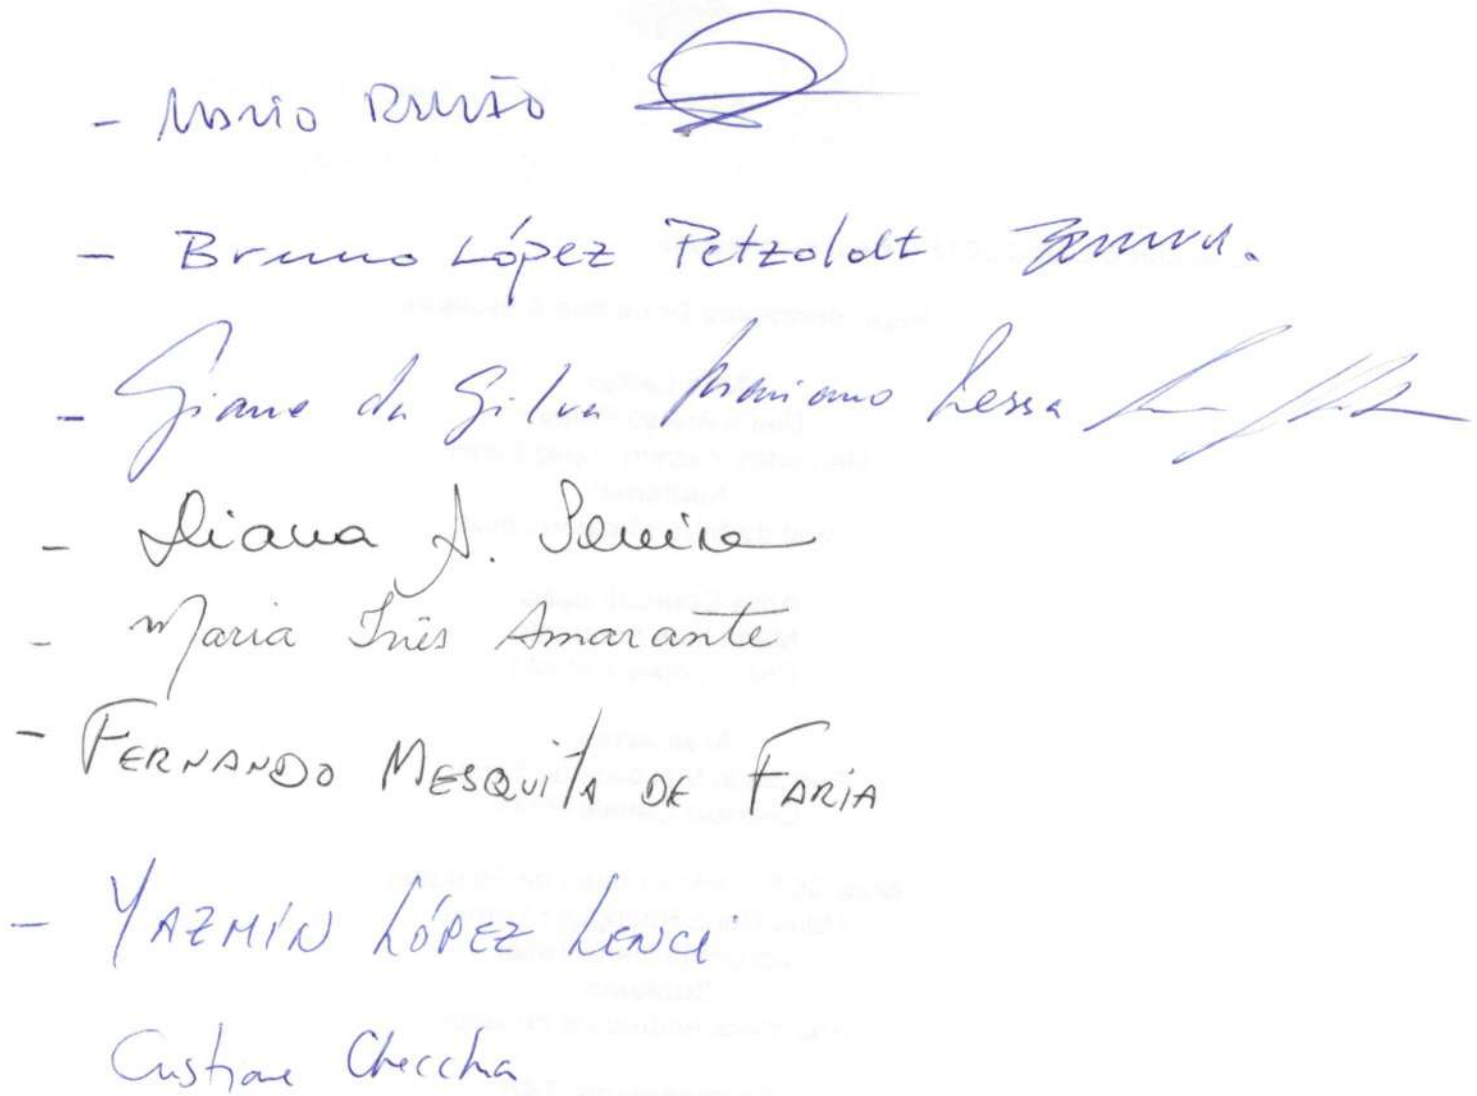 - Mario Ramão
- Bruno López Petzoldt
- Giane da Silva Mariano Lessa
- Diana A. Pereira
- Maria Inês Amarante
- FERNANDO MESQUITA DE FARIA
- YAZMÍN LÓPEZ LENCI
Cristiane Checchia